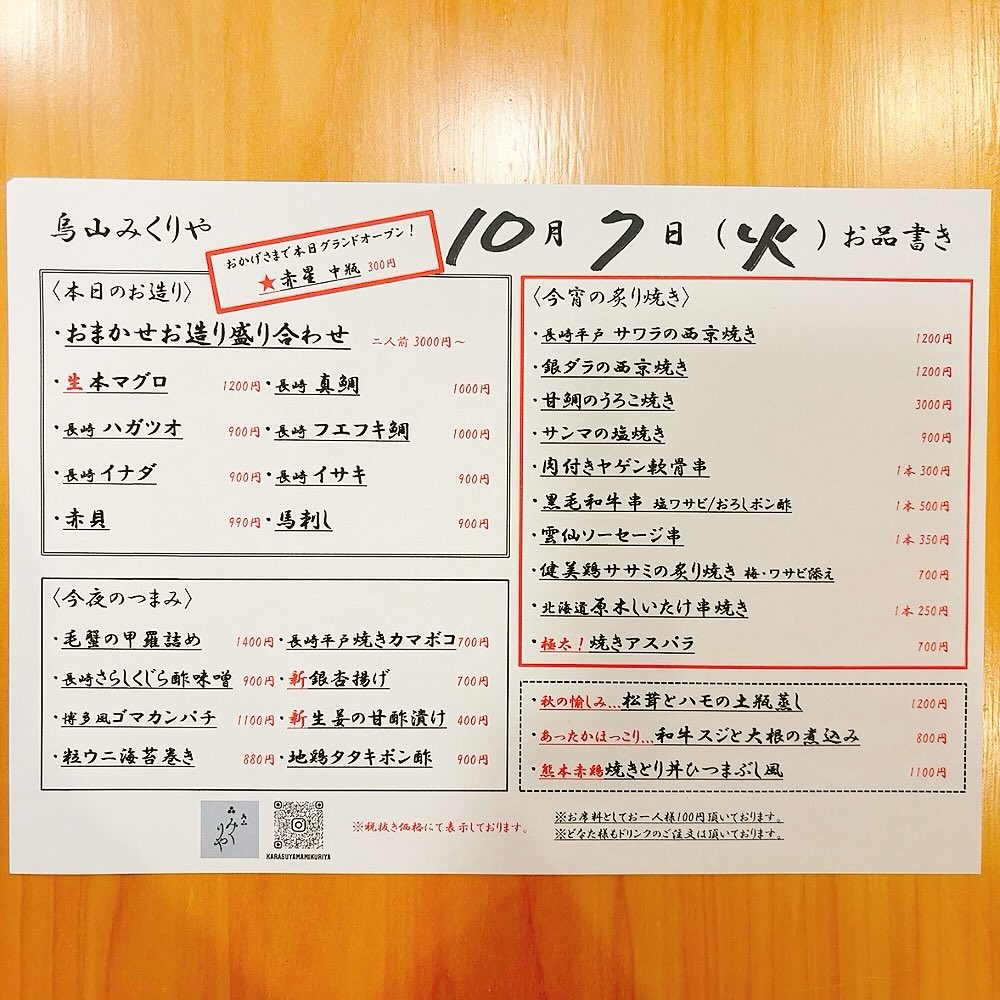 烏山みくりや
おかげさまで本日グランドオープン！
★赤星 中瓶 300円
10月7日（火）お品書き
〈本日のお造り〉
・おまかせお造り盛り合わせ 二人前 3000円～
・生本マグロ 1200円・長崎 真鯛 1000円
・長崎 ハガツオ 900円・長崎 フエフキ鯛 1000円
・長崎 イナダ 900円・長崎 イサキ 900円
・赤貝 990円・馬刺し 900円
〈今夜のつまみ〉
・毛蟹の甲羅詰め 1400円・長崎平戸焼きカマボコ700円
・長崎さらしくじら酢味噌 900円・新銀杏揚げ 700円
・博多風ゴマカンパチ 1100円・新生姜の甘酢漬け 400円
・粒ウニ海苔巻き 880円・地鶏タタキポン酢 900円
〈今宵の炙り焼き〉
・長崎平戸 サワラの西京焼き 1200円
・銀ダラの西京焼き 1200円
・甘鯛のうろこ焼き 3000円
・サンマの塩焼き 900円
・肉付きヤゲン軟骨串 1本 300円
・黒毛和牛串 塩ワサビ/おろしポン酢 1本 500円
・雲仙ソーセージ串 1本 350円
・健美鶏ササミの炙り焼き 梅・ワサビ添え 700円
・北海道原木しいたけ串焼き 1本 250円
・極太！焼きアスパラ 700円
・秋の愉しみ…松茸とハモの土瓶蒸し 1200円
・あったかほっこり…和牛スジと大根の煮込み 800円
・熊本赤鶏焼きとり丼ひつまぶし風 1100円
烏山
みくりや
KARASUYAMAMIKURIYA
※税抜き価格にて表示しております。
※お席料としてお一人様100円頂いております。
※どなた様もドリンクのご注文は頂いております。